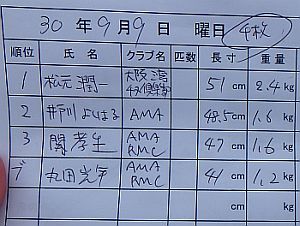 30 年 9 月 9 日 曜日 4枚
順位 氏名 クラブ名 匹数 長寸 重量
1 松元潤一 大阪湾 51 cm 2.4 kg
2 井戸川よしはる AMA 48.5 cm 1.6 kg
3 関孝生 AMA RMC 47 cm 1.6 kg
デ 丸田 AMA RMC 41 cm 1.2 kg
cm kg